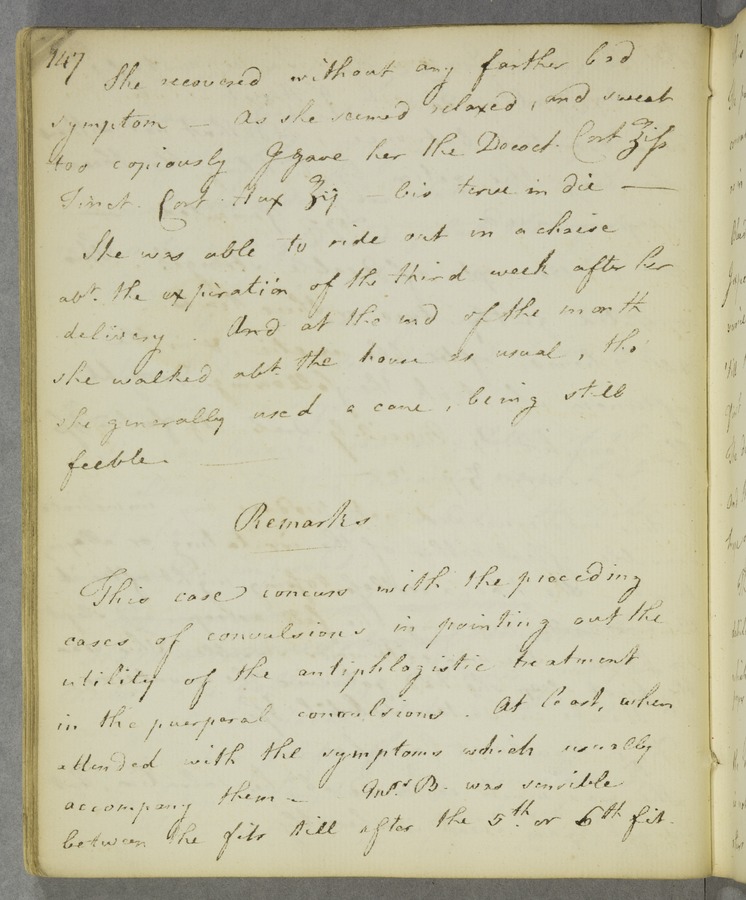 147
She recovered without any farther bad
symptom — As she seemed relaxed, and sweat
too copiously I gave her the Decoct. Cort ℥iſs
Tinct. Cort. Hux ʒij — bis terve in die —
She was able to ride out in a chaise
abt. the expiration of the third week after her
delivery. And at the end of the month
she walked abt. the house as usual, tho'
she generally used a cane, being still
feeble —
Remarks
This case concurs with the preceding
cases of convulsions in pointing out the
utility of the antiphlogistic treatment
in the puerperal convulsions. At least, when
attended with the symptoms which usually
accompany them — Mrs. B. was sensible
between the fits till after the 5th. or 6th fit.